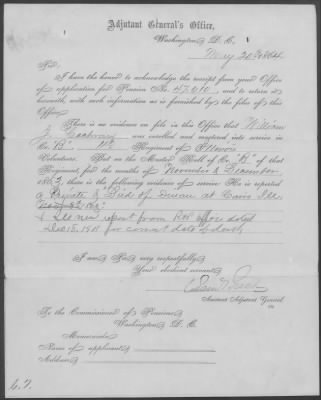 Adjutant General's Office,
Washington, D. C.
May 20th 1864
Sir,
I have the honor to acknowledge the receipt from your Office
of application for Pension No. 47,010, and to return it
herewith, with such information as is furnished by the files of this
Office.
There is no evidence on file in this Office that William
was enrolled and mustered into service in
Co. "B" Regiment of Illinois
Volunteers. But on the Muster Roll of Co. "B" of that
Regiment, for the months of November & December
1862, there is the following evidence of service: He is reported
a Private & "Died of disease at Cairo Ills.
& See new report from R&P Office dated
Dec 18, 1911 for correct date of death
I am, Sir, very respectfully,
Your obedient servant,
Assistant Adjutant General.
To the Commissioner of Pensions,
Washington, D. C.
Memoranda:
Name of applicant,
Address,